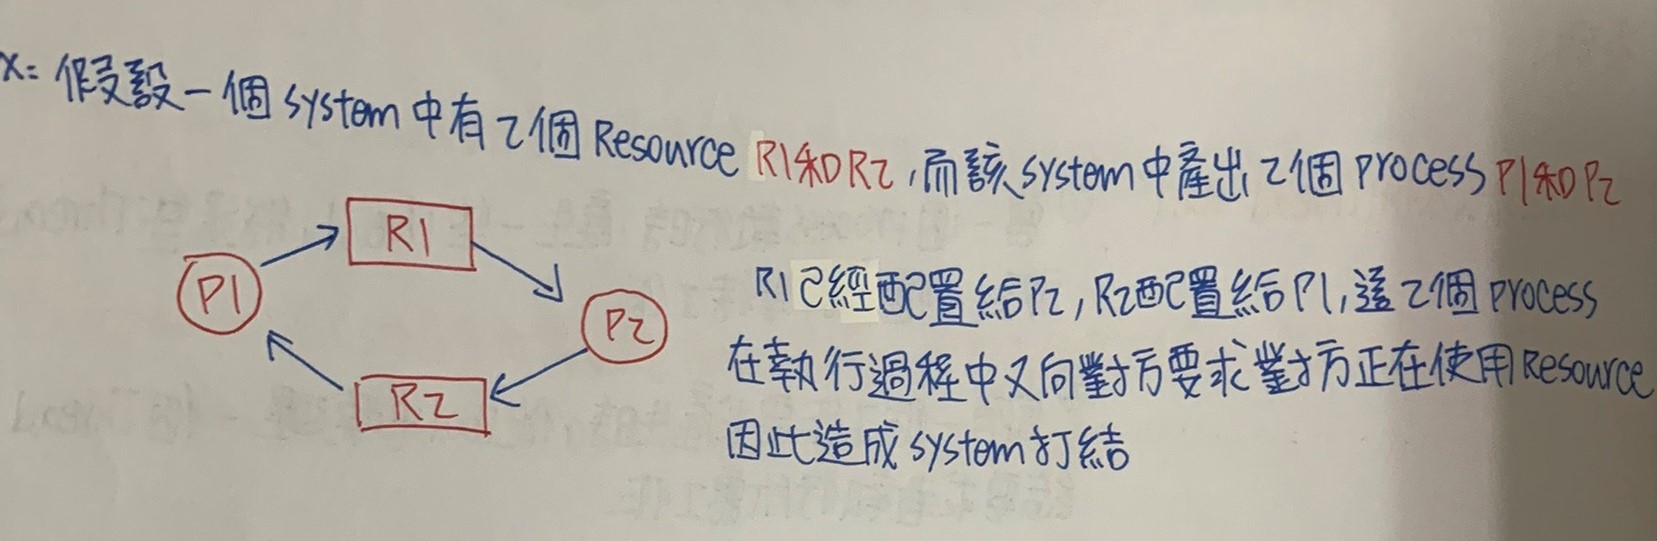 X: 假設一個system中有2個Resource R1和R2,而該system中產出2個process P1和P2
R1
P1
P2
R2
R1已經配置給P2,R2配置給P1,這2個process
在執行過程中又向對方要求對方正在使用Resource
因此造成system打結